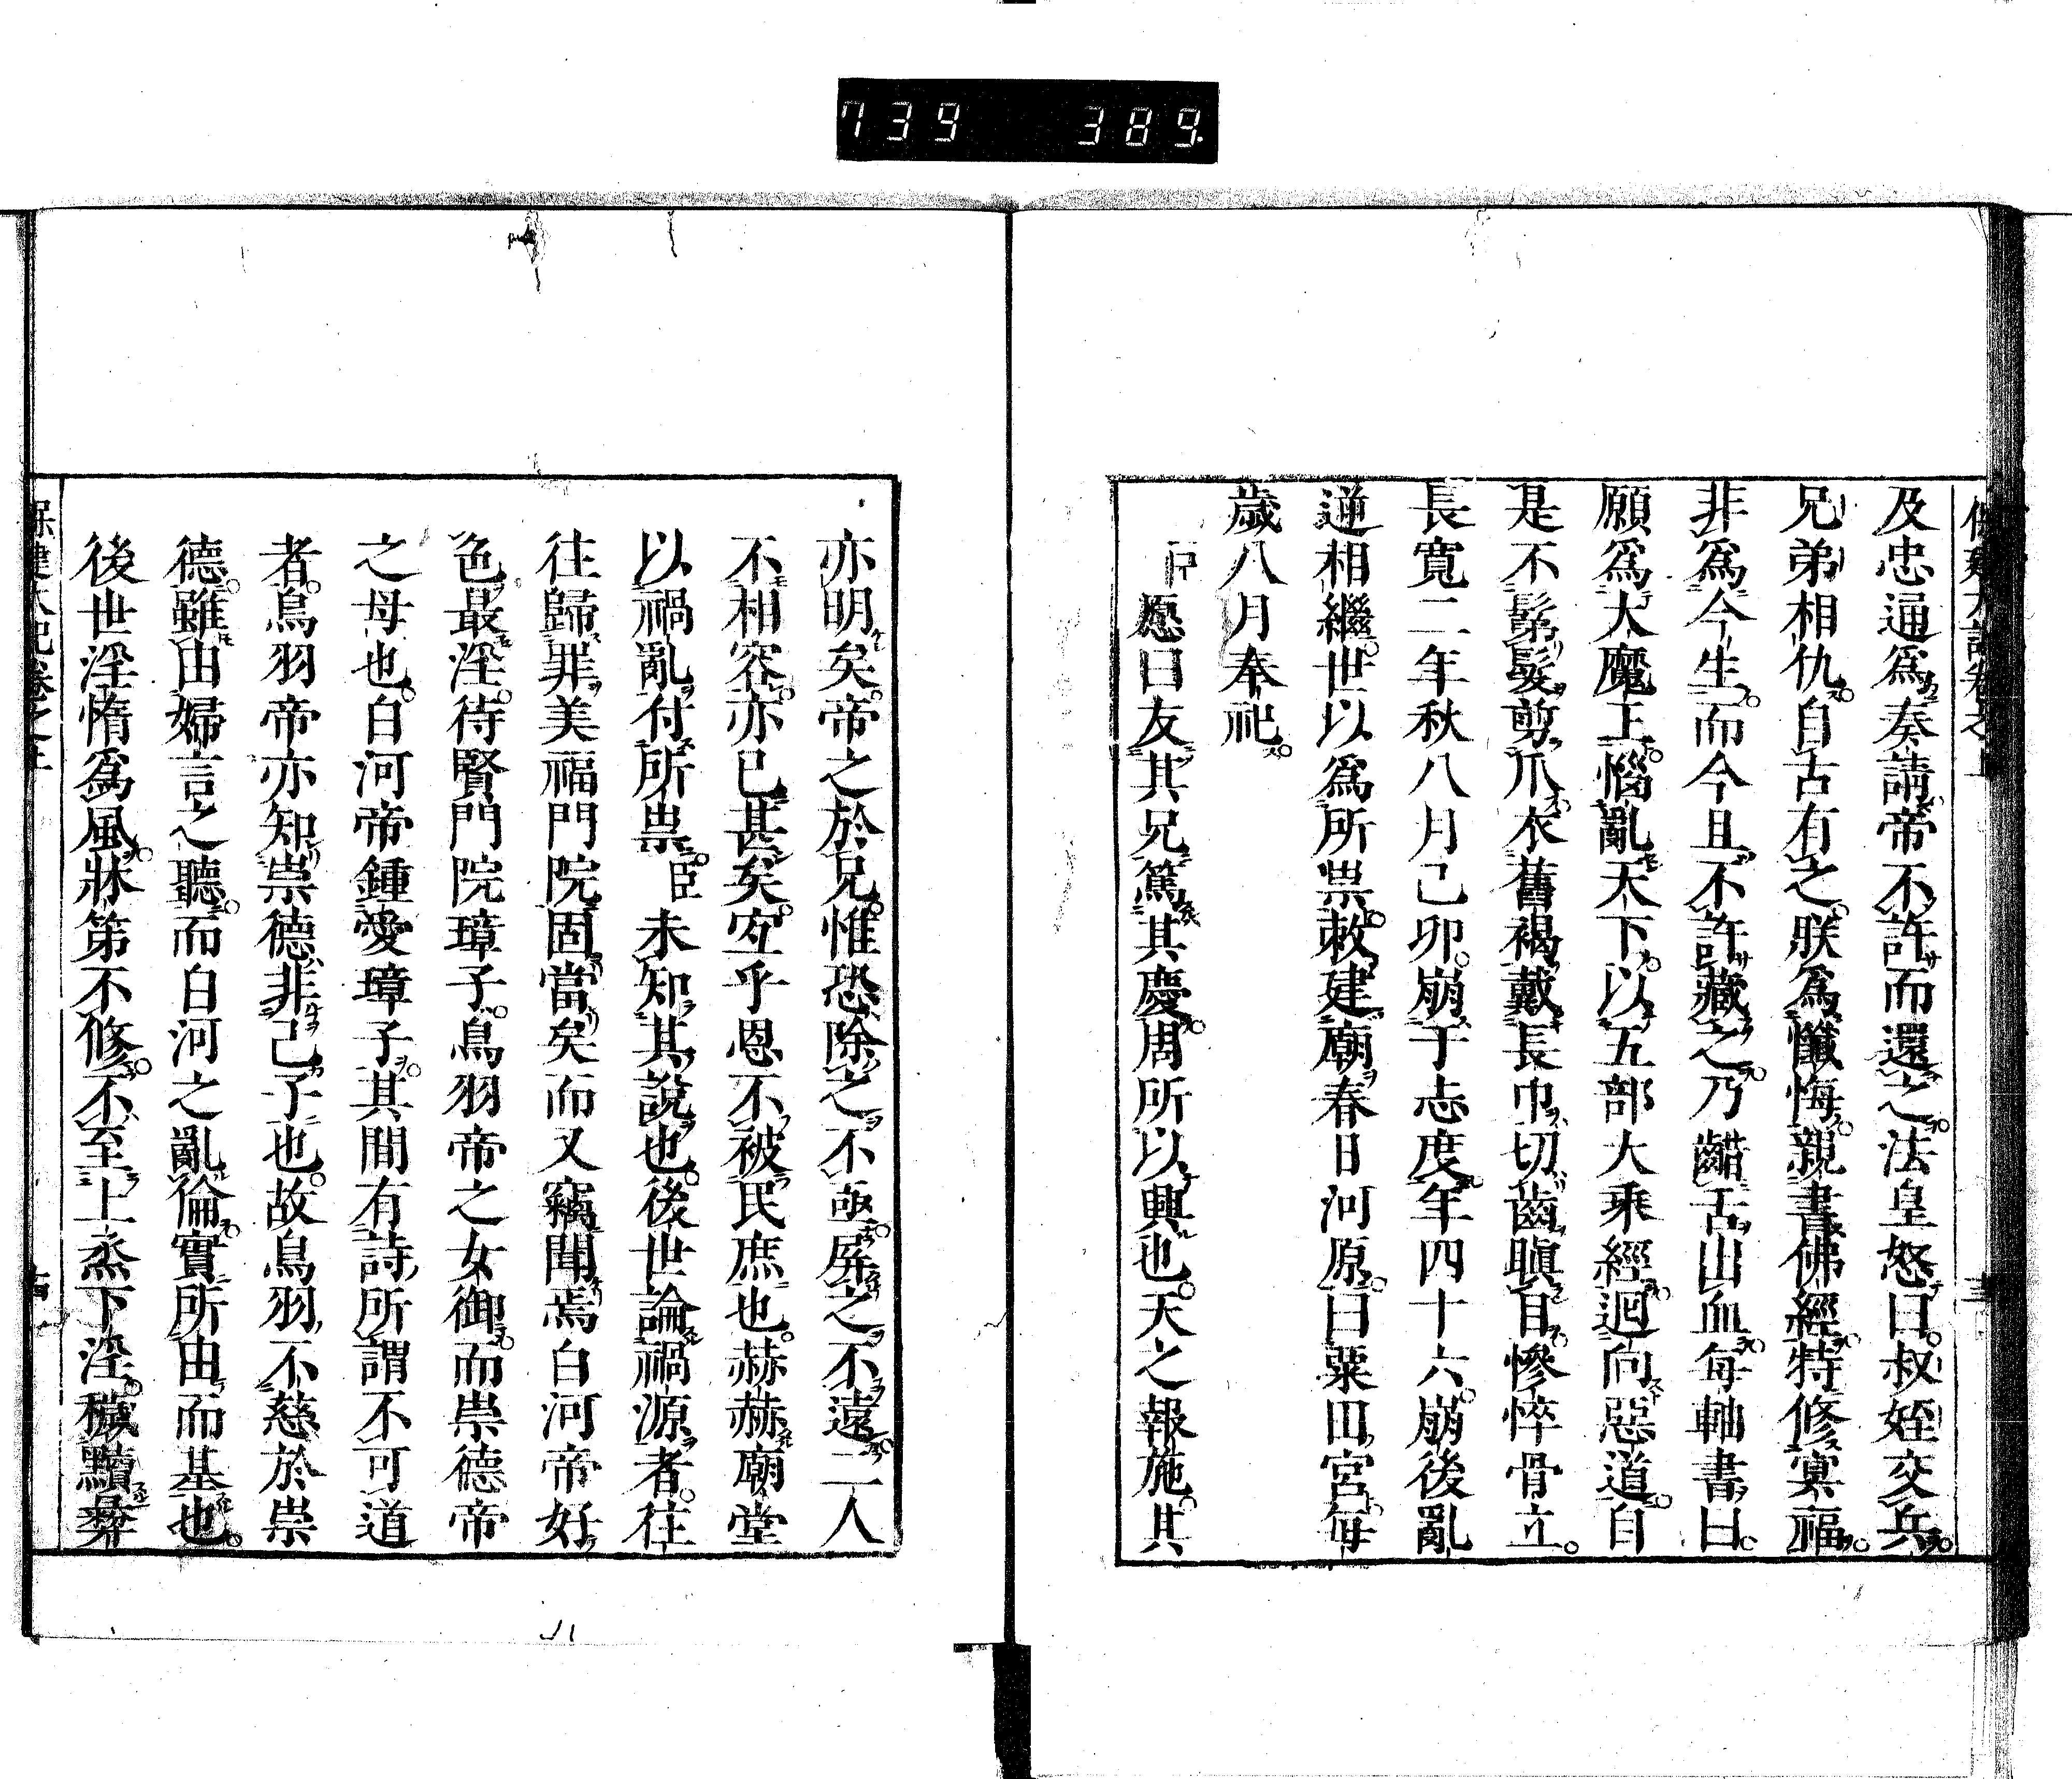 739 389
及忠通爲奏請帝不許而還之法皇怒曰叔姪交兵
兄弟相仇自古有之朕爲懺悔親書佛經特修冥福
非爲今生而今且不許藏之乃齰舌出血每軸書曰
願爲大魔王惱亂天下以五部大乘經迴向惡道自
是不鬀髮剪爪衣舊褐戴長巾切齒瞋目慘悴骨立
長寬二年秋八月己卯崩于志度年四十六崩後亂
逆相繼世以爲所祟敕建廟春日河原曰粟田宮每
歲八月奉祀
臣愿曰友其兄篤其慶周所以興也天之報施其
亦明矣帝之於兄惟恐除之不亟屏之不遠二人
不相容亦已甚矣宜乎恩不被民庶也赫赫廟堂
以禍亂付所祟臣未知其說也後世論禍源者往
往歸罪美福門院固當矣而又竊聞焉白河帝好
色最淫待賢門院璋子鳥羽帝之女御而崇德帝
之母也白河帝鍾愛璋子其間有詩所謂不可道
者鳥羽帝亦知崇德非己子也故鳥羽不慈於崇
德雖由婦言之聽而白河之亂倫實所由而基也
後世淫惰爲風牀笫不修不至上烝下淫穢黷彝
保建大記卷之上